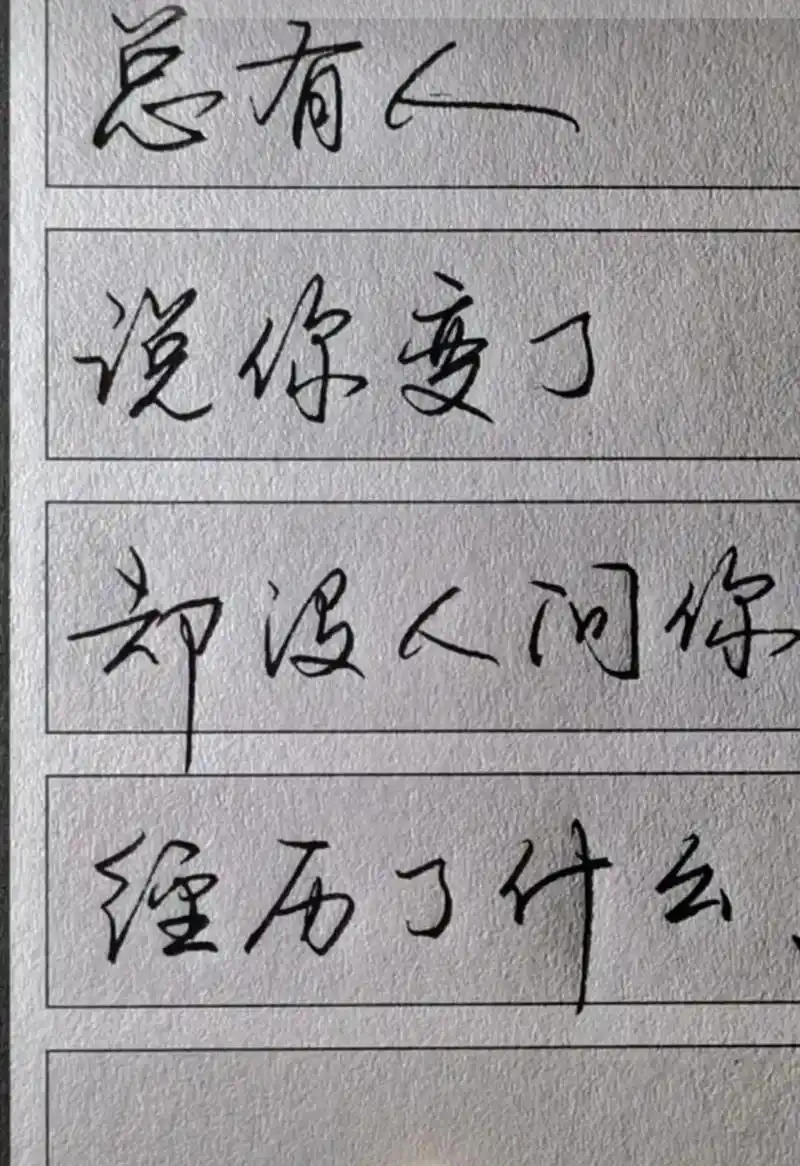 总有人
说你变了
却没人问你
经历了什么